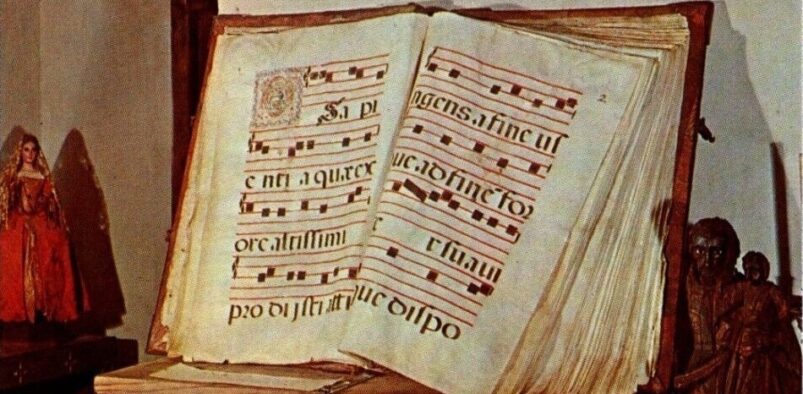 O Sa pi
e nti a quæ ex
ore altissimi
pro di jsti atti
2
ngens. a fine uſ
ue ad finē for
r suaui
ue dispo